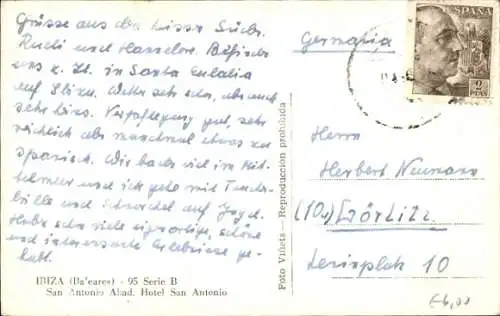 Grüsse aus dem heissen Süden.
Rudi und Hannelore. Befinden
uns z. Zt. in Santa Eulalia
auf Ibiza. Wetter sehr schön, aber auch
sehr heiss. Verpflegung gut, sehr
reichlich aber manchmal etwas zu
spanisch. Wir baden viel im Mit-
telmeer und ich gehe mit Taucher-
brille und Schnorchel auf Jagd.
Habe schon viele eigenartige, schöne
und interessante Erlebnisse ge-
habt.
IBIZA (Baleares) - 95 Serie B
San Antonio Abad. Hotel San Antonio
Foto Viñets — Reproduccion prohibida
ESPAÑA
2
PTAS
Germania
Herrn
Herbert Neumann
(10a) Görlitz
Leninplatz 10
€6,00